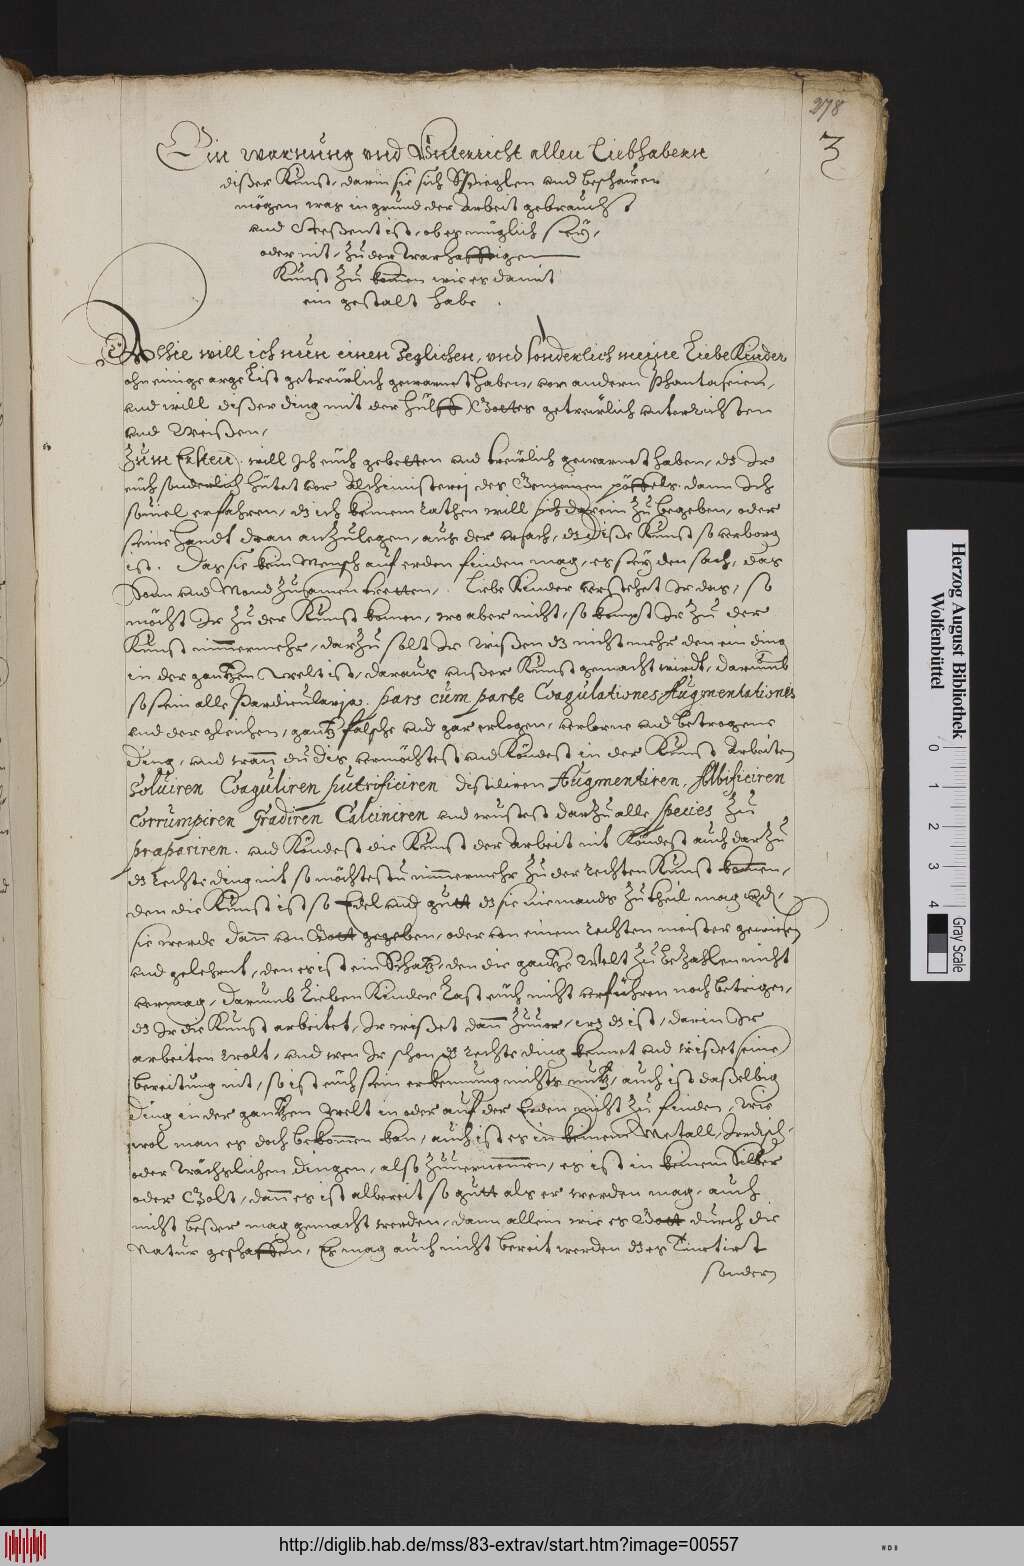 278
3
Ein warnung vnd Vnterricht allen Liebhabern
dißer Kunst, darin sie sich Spieglen vnd beschauwen
mögen was in grund der Arbeit gebraucht
vnd ist, ob es müglich sey,
oder nit, zu der Warhafftigen
Kunst zu komen wie es damit
ein gestalt habe.
Alhie will ich nun einen Jeglichen, vnd sonderlich meine Liebe Kinder
ohn einige arge List getreuwlich gewarnet haben, vor andern Phantaseien,
vnd will dißer ding mit der hülff Gottes getreuwlich vnterrichten
vnd Weißen,
Zum Ersten. will Ich euch gebetten vnd treuwlich gewarnet haben, dz Ir
euch sonderlich hütet vor Alchimisterej des Gemeinen pöffels, dann Ich
souiel erfahren, dz ich keinem rathen will sich darein zu begeben, oder
seine handt dran anzulegen, aus der vrsach, dz diße Kunst so verborg
ist. Das sie kein Mensch auf erden finden mag, es sey den sach, das
Sonn vnd Mond zusamen tretten. Liebe Kinder verstehet Ir das, so
möcht Ir zu der Kunst komen, wo aber nicht, so kompt Ir zu der
Kunst nimmermehr, darzu solt Ir wißen dz nicht mehr den ein ding
in der gantzen Welt ist, daraus vnßer Kunst gemacht wirdt, darumb
so sein alle Particularia. pars cum parte Coagulationes Augmentationes
vnd der gleichen, gantz falsche vnd gar erlogen, verlorne vnd betrogene
ding, vnd wann du dis vermöchtest vnd köndest in der Kunst Arbeiten
Soluiren Coaguliren putrificiren distiliren Augmentiren, Albificiren
Corrumpiren Gradiren Calciniren vnd wustest darzu alle species zu
præpariren. vnd köndest die Kunst der Arbeit nit köndest auch darzu
dz rechte ding nit so möchtestu nimmermehr zu der rechten Kunst komen,
den die Kunst ist so Edel vnd gutt dz sie niemands zu theil mag werden,
sie werde dann von Gott gegeben, oder von einem rechten meister gewiesen
vnd gelehrnt, den es ist ein Schatz, den die gantze Welt zu bezahlen nicht
vermag, darumb Lieben Kinder Last euch nicht verführen noch betrigen,
dz Ir die Kunst arbeitet, Ir wißet dann zuuor, was dz ist, darin Ir
arbeiten wolt, vnd wen Ir schon dz rechte ding kennet vnd wißet seine
bereitung nit, so ist euch sein erkennung nichts nutz, auch ist daßelbig
ding in der gantzen Welt in oder auf der Erden nicht zu finden, wie
wol man es doch bekommen kan, auch ist es in keinem Metall, Irdisch
oder Wächslichen dingen, also zuuernemmen, es ist in keinem Silber
oder Golt, dann es ist albereit so gutt als er werden mag, auch
nicht beßer mag gemacht werden, dann allein wie es Gott durch die
Natur geschaffen, Es mag auch nicht bereit werden dz es Tinctirt
sondern
Herzog August Bibliothek
Wolfenbüttel
0 1 2 3 4
Gray Scale
http://diglib.hab.de/mss/83-extrav/start.htm?image=00557